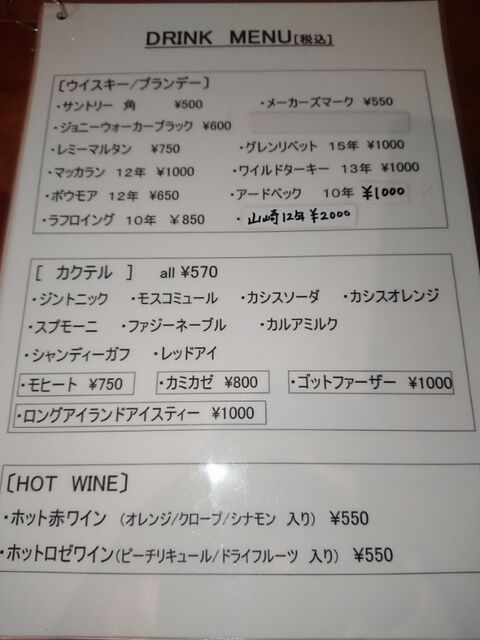 DRINK MENU[税込]
[ウイスキー/ブランデー]
・サントリー 角 ¥500 ・メーカーズマーク ¥550
・ジョニーウォーカーブラック ¥600
・レミーマルタン ¥750 ・グレンリベット 15年 ¥1000
・マッカラン 12年 ¥1000 ・ワイルドターキー 13年 ¥1000
・ボウモア 12年 ¥650 ・アードベック 10年 ¥1000
・ラフロイング 10年 ¥850 ・山崎12年 ¥2000
[ カクテル ] all ¥570
・ジントニック ・モスコミュール ・カシスソーダ ・カシスオレンジ
・スプモーニ ・ファジーネーブル ・カルアミルク
・シャンディーガフ ・レッドアイ
・モヒート ¥750 ・カミカゼ ¥800 ・ゴットファーザー ¥1000
・ロングアイランドアイスティー ¥1000
[HOT WINE]
・ホット赤ワイン (オレンジ/クローブ/シナモン 入り) ¥550
・ホットロゼワイン(ピーチリキュール/ドライフルーツ 入り) ¥550